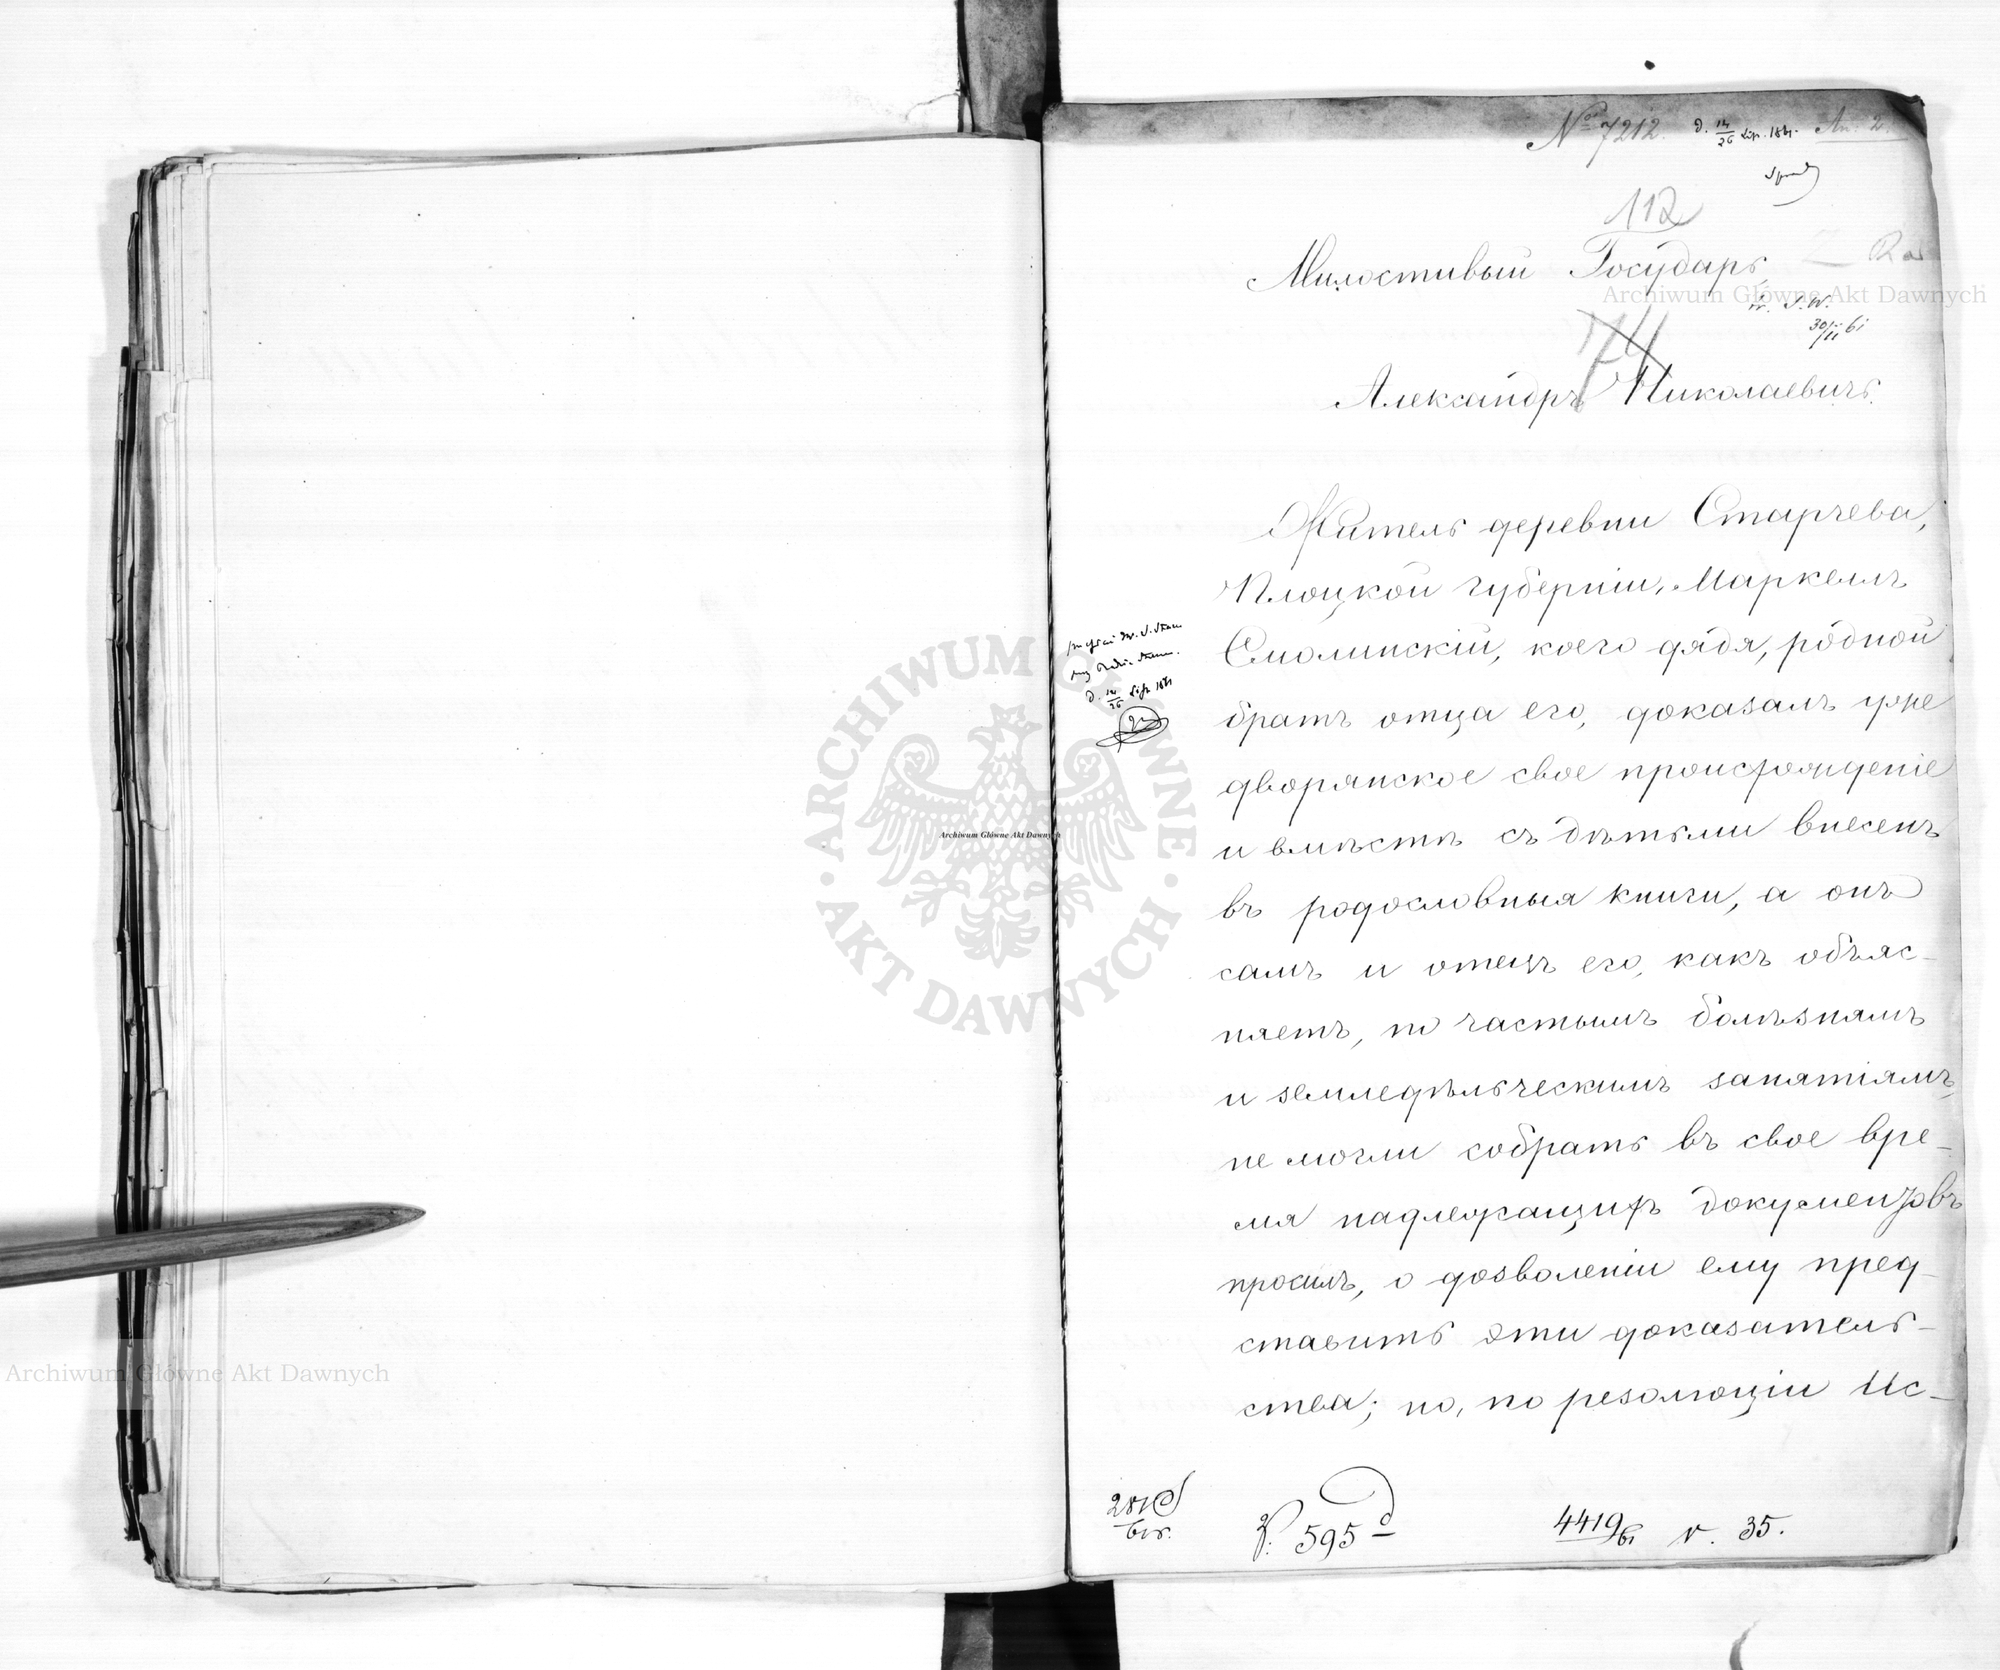 № 7212.
112
Милостивый Государь,
74
Александръ Николаевичъ.
Житель деревни Старчева,
Плоцкой губерніи, Маркеллъ
Смолинскій, коего дядя, родной
братъ отца его, доказалъ уже
дворянское свое происхожденіе
и вмѣстѣ съ дѣтьми внесенъ
въ родословныя книги, а онъ
самъ и отецъ его, какъ объяс-
няетъ, по частымъ болѣзнямъ
и земледѣльческимъ занятіямъ,
не могли собрать въ свое вре-
мя надлежащихъ документовъ
просилъ, о дозволеніи ему пред-
ставить эти доказатель-
ства; но, по резолюціи Ис-
595
4419/61 35.
Archiwum Główne Akt Dawnych
Archiwum Główne Akt Dawnych
Archiwum Główne Akt Dawnych
ARCHIWUM GŁÓWNE
AKT DAWNYCH